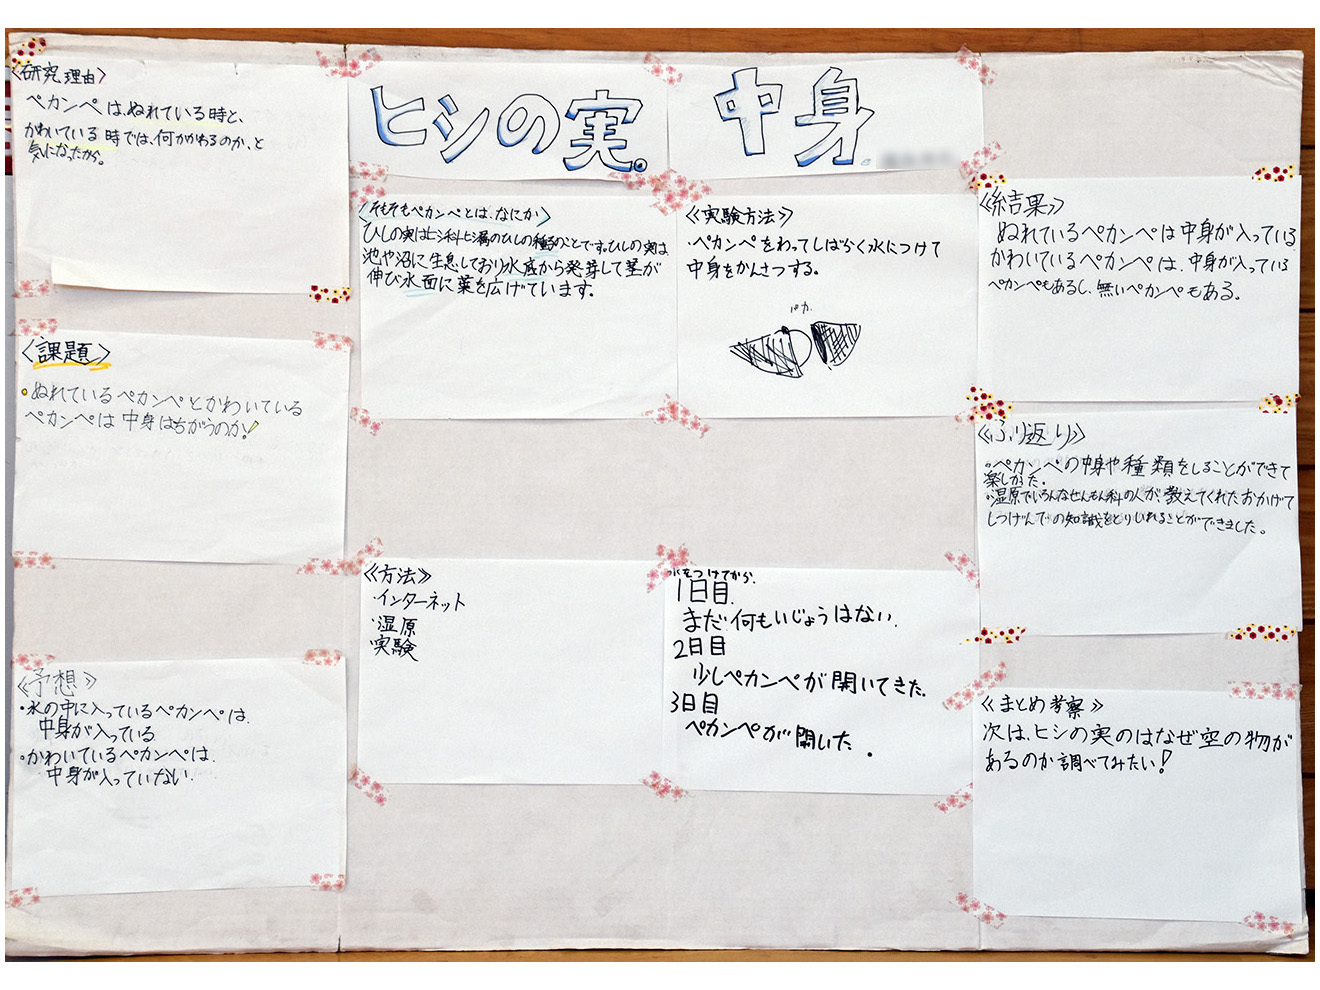 <研究理由>
ペカンペは、ぬれている時と、
かわいている時では、何がかわるのか、と
気になったから。
<課題>
・ぬれているペカンペとかわいている
ペカンペは中身はちがうのか!
≪予想≫
・水の中に入っているペカンペは、
中身が入っている
・かわいているペカンペは、
中身が入っていない.
ヒシの実。 中身
<そもそもペカンペとは、なにか>
ひしの実はヒシ科ヒシ属のひしの種子のことです。ひしの実は
池や沼に生息しており水底から発芽して茎が
伸び水面に葉を広げています。
≪実験方法≫
・ペカンペをわってしばらく水につけて
中身をかんさつする。
パカ
≪方法≫
・インターネット
・湿原
・実験
水をつけてから、
1日目.
まだ何もいじょうはない.
2日目
少しペカンペが開いてきた.
3日目
ペカンペが開いた。
≪結果≫
ぬれているペカンペは中身が入っている.
かわいているペカンペは、中身が入っている
ペカンペもあるし、無いペカンペもある。
≪ふり返り≫
。ペカンペの中身や種類をしることができて
楽しかった。
。湿原でいろんなせんもん科の人が、教えてくれたおかげで
しつげんでの知識をとりいれることができました。
≪まとめ考察≫
次は、ヒシの実のはなぜ空の物が
あるのか調べてみたい!